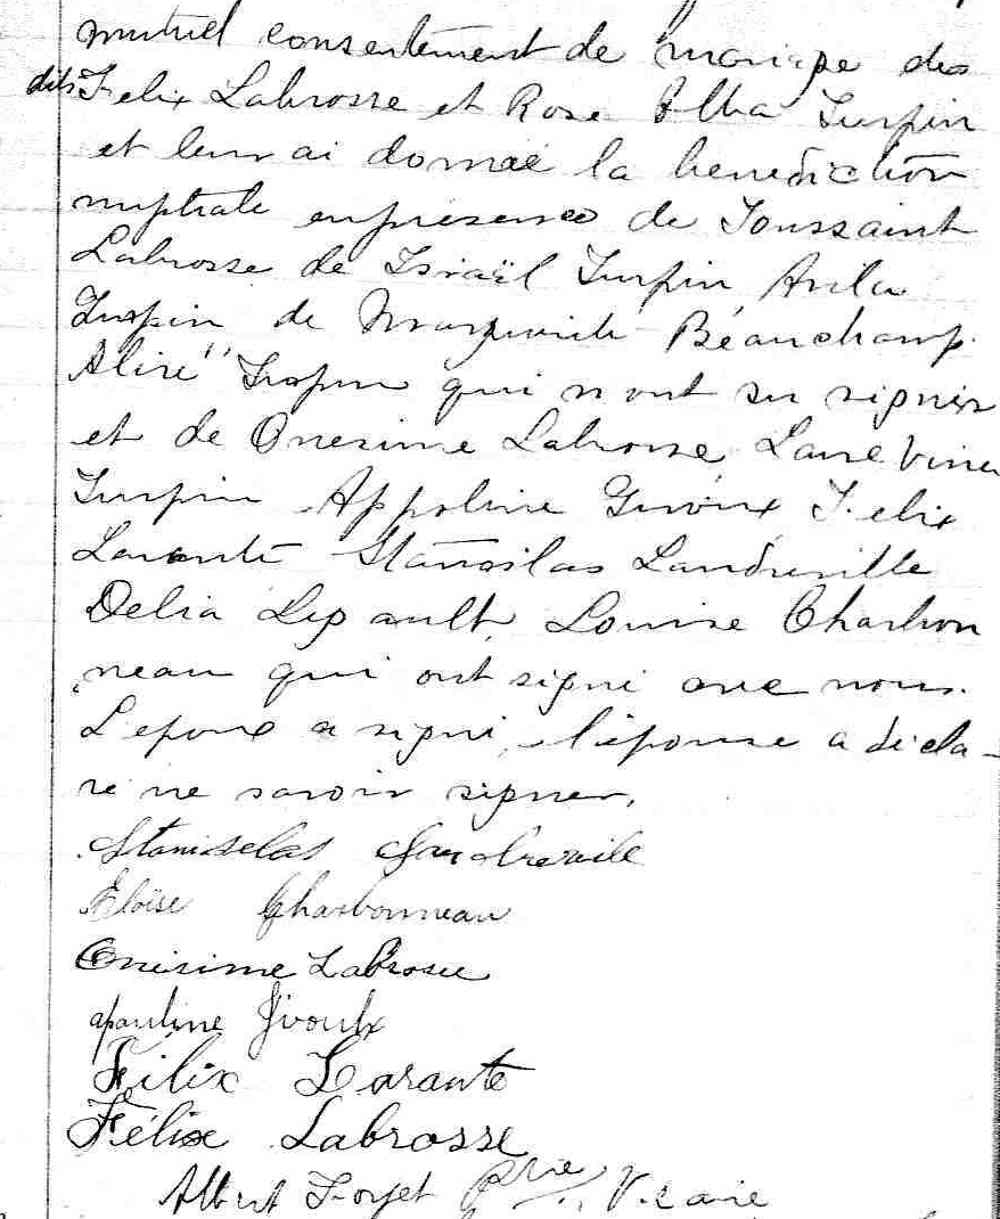 mutuel consentement de mariage des
dits Felix Labrosse et Rose Alba Turpin
et leur ai donné la benediction
nuptiale en presence de Toussaint
Labrosse de Israël Turpin Avila
Turpin de Marguerite Beauchamp
Turpin qui n ont su signer
et de Onesime Labrosse,
Turpin Appoline Giroux Felix
Larante Stanislas Landreville
Delia Legault, Louise Charbon
neau qui ont signé avec nous.
L epoux a signé, l'épouse a décla-
ré ne savoir signer.
Stanislas Landreville
Eloïse Charbonneau
Onésime Labrosse
apauline Giroulx
Félix Larante
Félix Labrosse
Albert Forget Ptre Vicaire